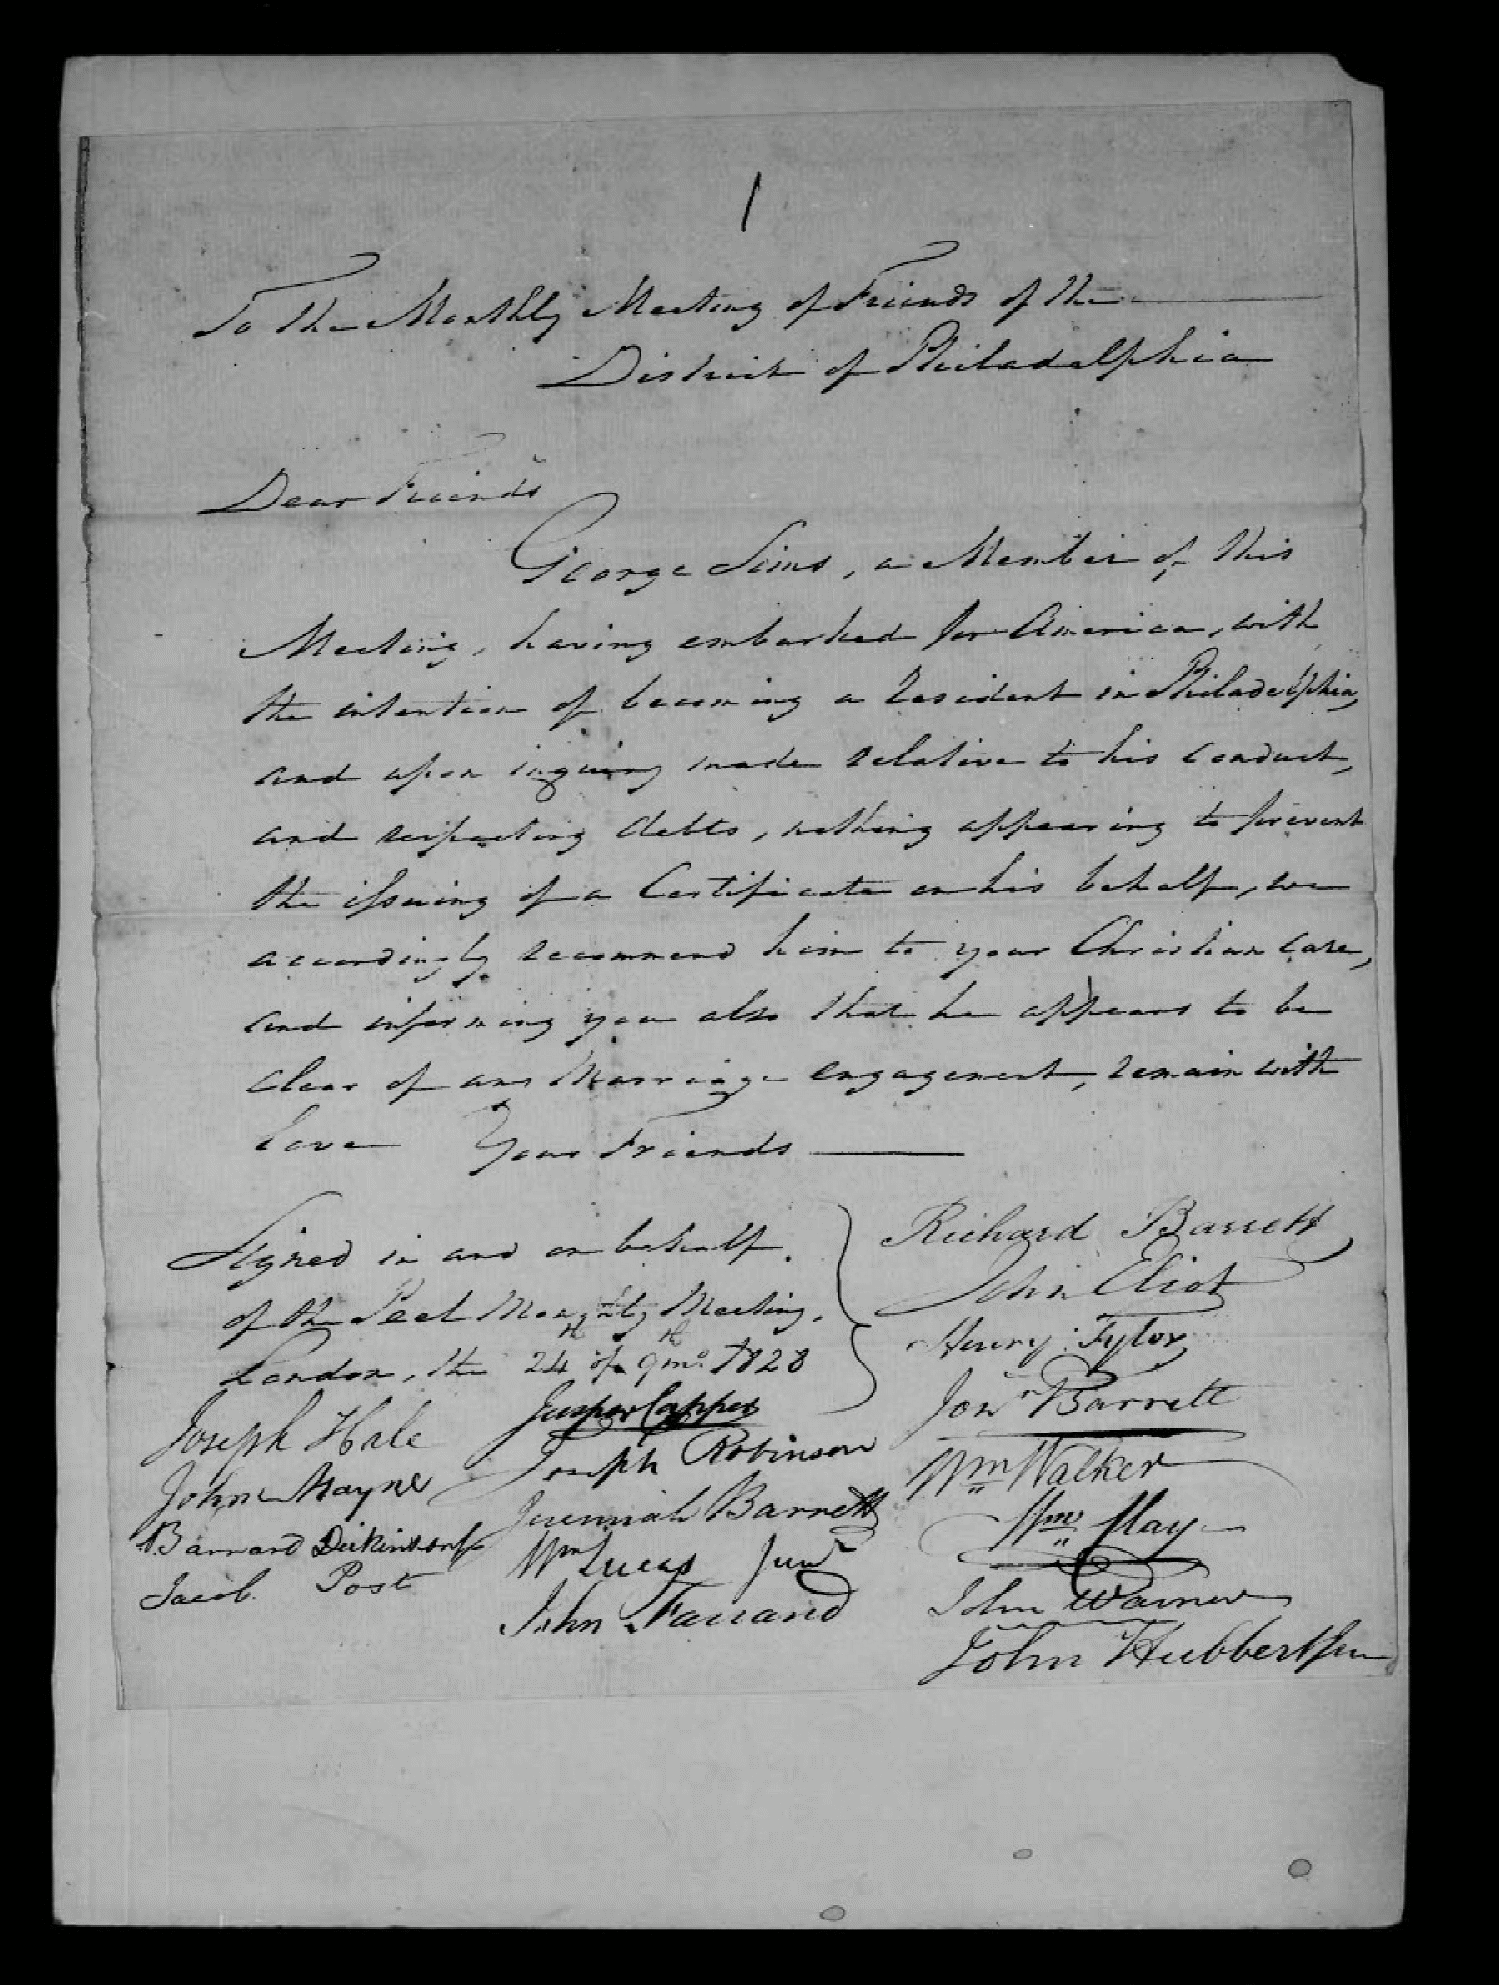 1
To the Monthly Meeting of Friends of the
District of Philadelphia
Dear Friends
George Sims, a Member of this
Meeting, having embarked for America, with
the intention of becoming a resident in Philadelphia,
and upon inquiry made relative to his conduct,
and respecting debts, nothing appearing to prevent
the issuing of a Certificate on his behalf, we
accordingly recommend him to your Christian care,
and informing you also that he appears to be
clear of any Marriage engagement, remain with
love Your Friends
Signed in and on behalf
of the Peel Monthly Meeting,
London, the 24th of 9th mo. 1828
Richard Barrett
John Eliot
Henry Tylor
Jonn Barrett
Wm Walker
Wm May
John Warner
John Hubbert Jun
Jasper Capper
Joseph Robinson
Jeremiah Barrett
Wm Lucas Junr
John Farrand
Joseph Hale
John Kayne
Barnard Dickinson
Jacob Post